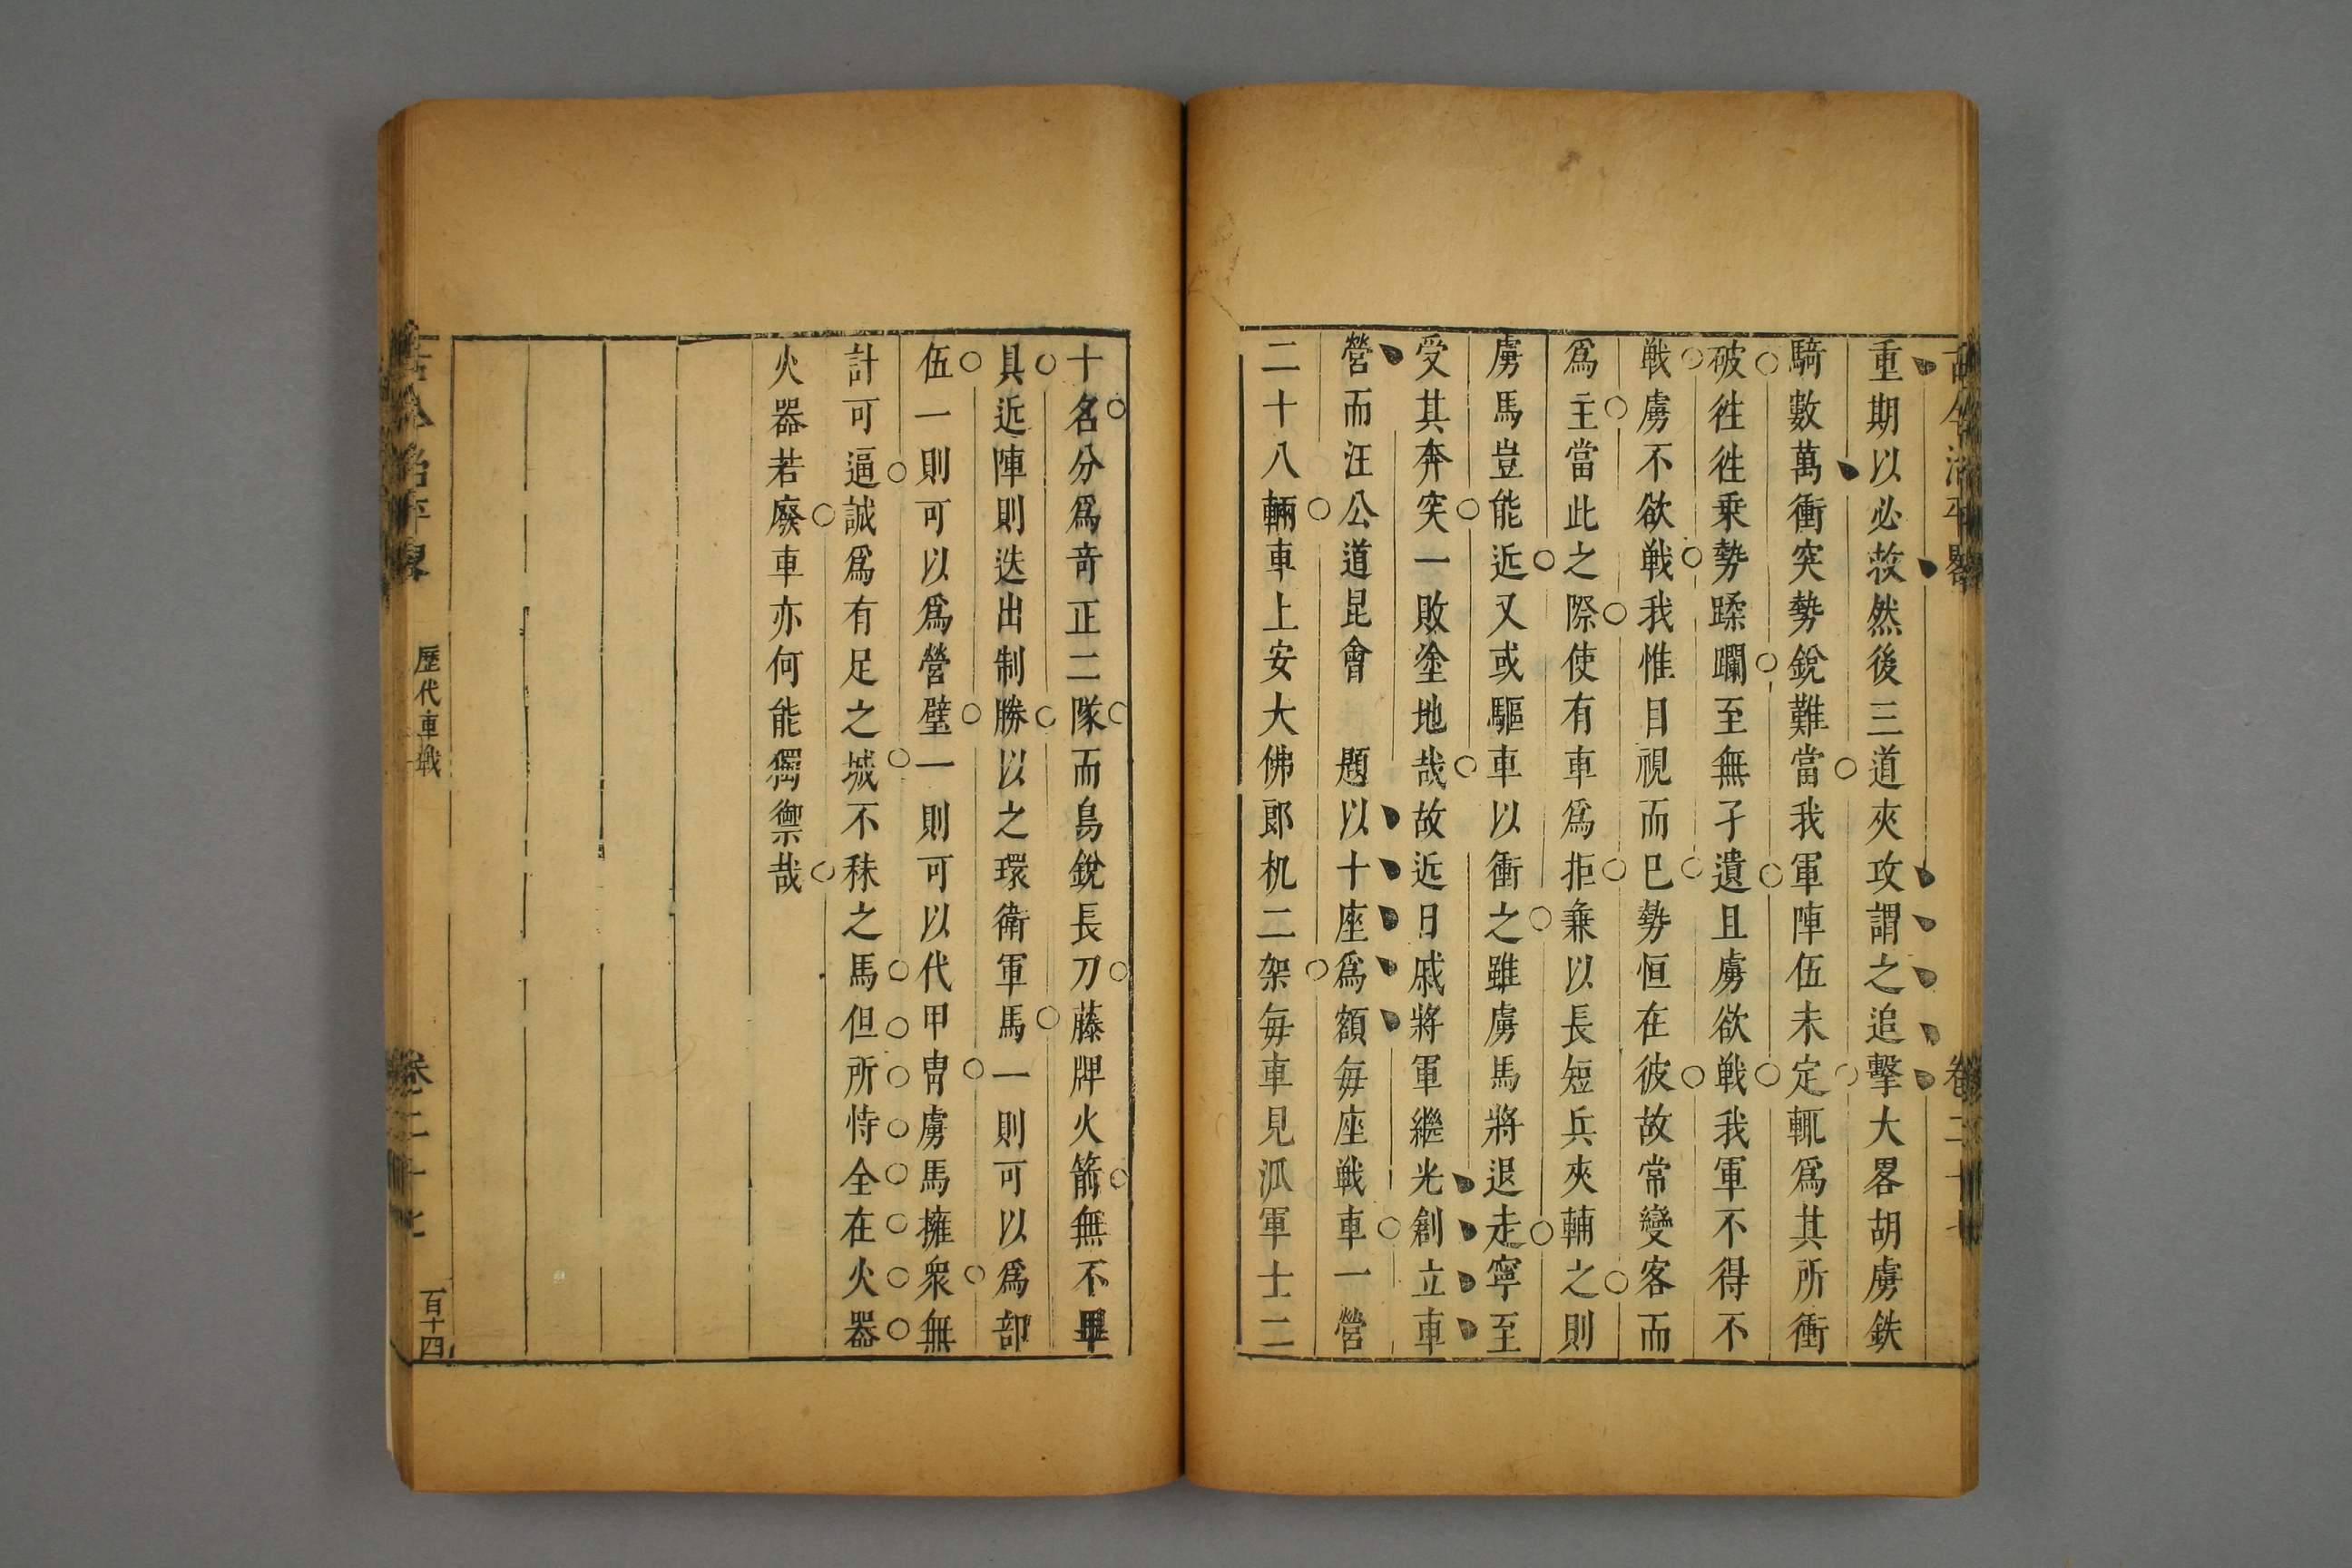 重期以必救然後三道夾攻謂之追擊大畧胡虜鉄
騎數萬衝突勢銳難當我軍陣伍未定輒爲其所衝
破徃徃乗勢蹂躝至無孑遺且虜欲戦我軍不得不
戦虜不欲戦我惟目視而巳勢恒在彼故常變客而
爲主當此之際使有車爲拒兼以長短兵夾輔之則
虜馬豈能近又或驅車以衝之雖虜馬將退走寧至
受其奔突一敗塗地哉故近日戚將軍繼光創立車
營而汪公道昆會 題以十座爲額毎座戦車一營
二十八輛車上安大佛郎机二架毎車見派軍士二
十名分爲竒正二隊而鳥銃長刀藤牌火箭無不畢
具近陣則迭出制勝以之環衛軍馬一則可以爲部
伍一則可以爲營壁一則可以代甲冑虜馬擁衆無
計可逼誠爲有足之城不秣之馬但所恃全在火器
火器若廢車亦何能獨禦哉
古今治平畧
歷代車戦
卷二十七
百十四